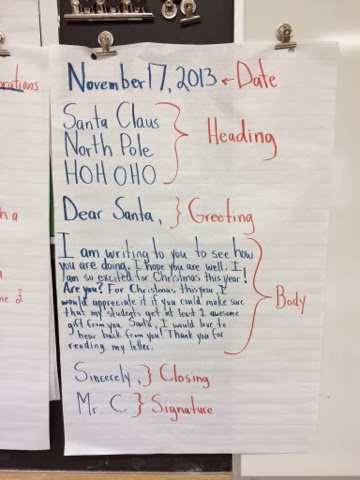 November 17, 2013 ← Date
Santa Claus
North Pole
HOH OHO
Heading
Dear Santa, } Greeting
I am writing to you to see how
you are doing. I hope you are well. I
am so excited for Christmas this year!
Are you? For Christmas this year, I
would appreciate it if you could make sure
that my students get at least 1 awesome
gift from you. Santa, I would love to
hear back from you! Thank you for
reading my letter.
Body
Sincerely, } Closing
Mr. C } Signature
orations
h a
a
me of